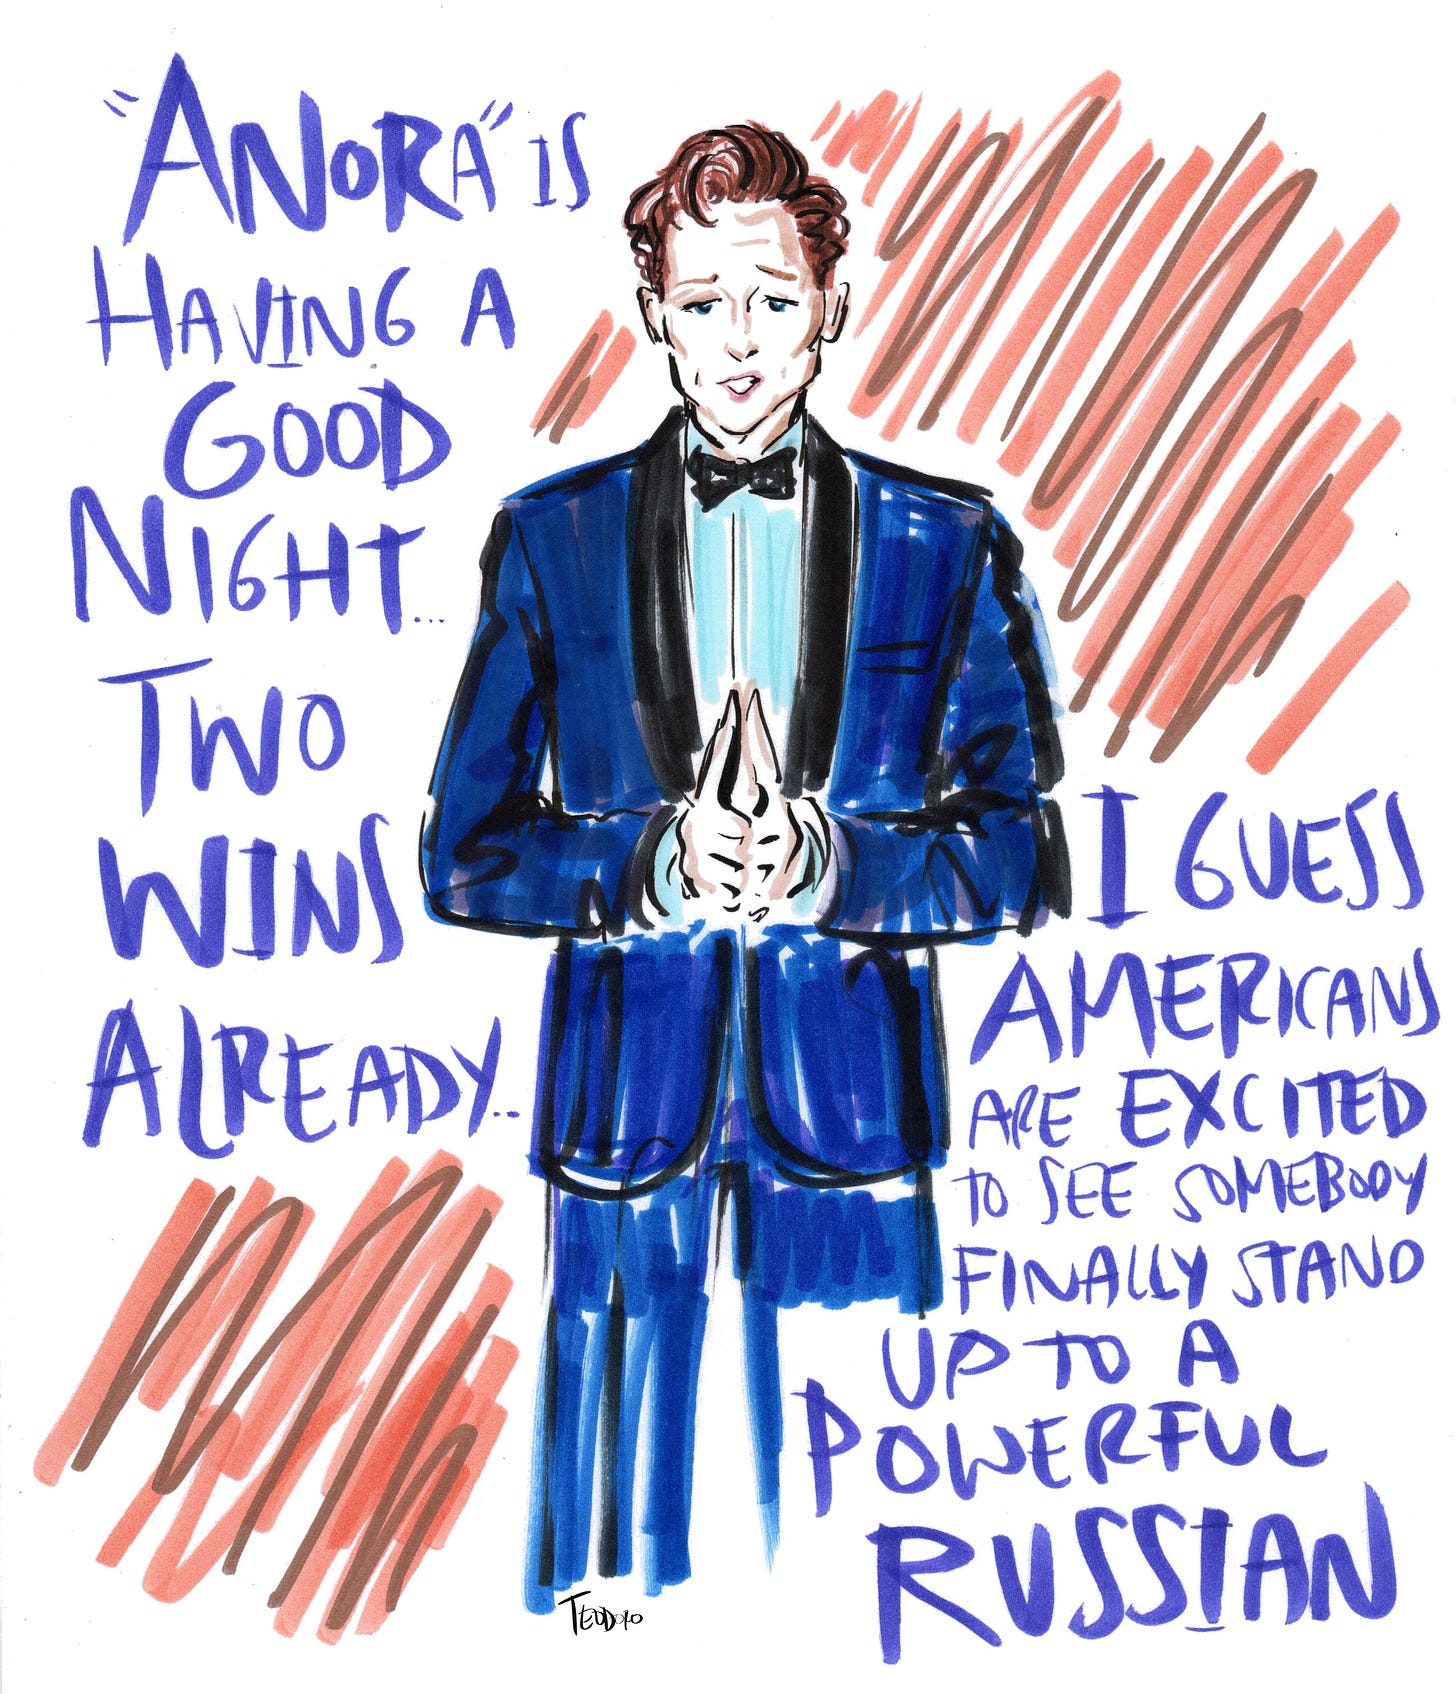 "ANORA" IS
HAVING A
GOOD
NIGHT...
TWO
WINS
ALREADY...
I GUESS
AMERICANS
ARE EXCITED
TO SEE SOMEBODY
FINALLY STAND
UP TO A
POWERFUL
RUSSIAN
TEODORO